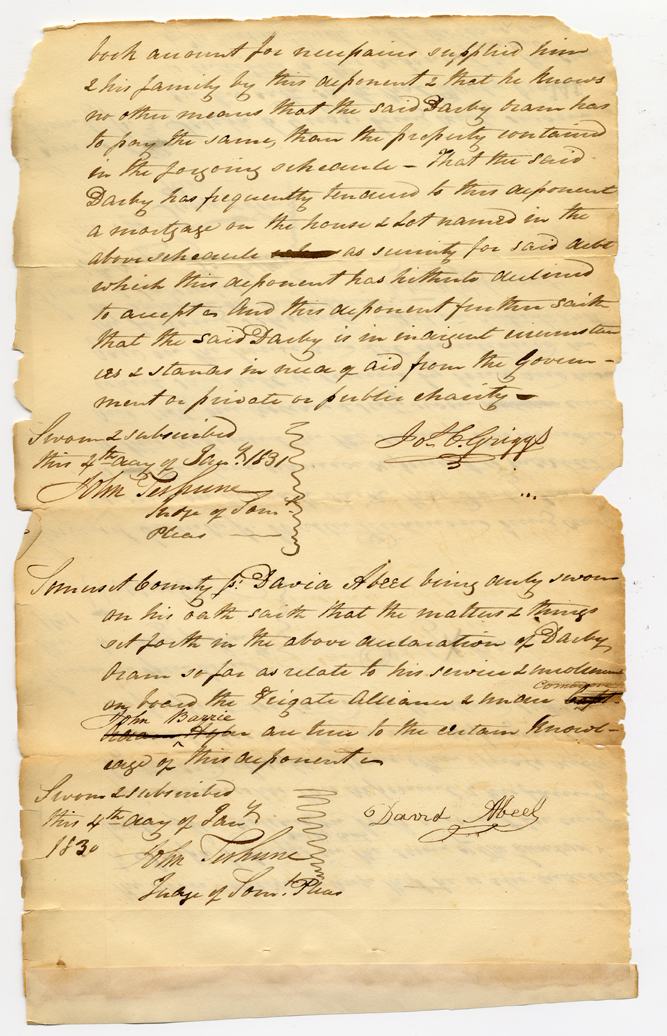 book account for necessaries supplied him
& his family by this deponent & that he knows
no other means that the said Darby Oram has
to pay the same, than the property contained
in the forgoing schedule – That the said
Darby has frequently tendered to this deponent
a mortgage on the house & Lot named in the
above schedule as security for said debt
which this deponent has hitherto declined
to accept – And this deponent further saith
that the said Darby is in indigent circumstan
ces & stands in need of aid from the Govern–
ment or private or public charity –
Sworn & subscribed
this 4th day of Jany. 1831
Jos. C. Griggs
John Terhune
Judge of Som.t
Pleas
Somerset County ss: David Abeel being duly sworn
on his oath saith that the matters & things
set forth in the above declaration of Darby
Oram so far as relate to his service &
on board the Frigate Alliance & under Capt.
John Barrie
are true to the certain knowl–
edge of this deponent –
Sworn & subscribed
this 4th day of Jany
1830
David Abeel
John Terhune
Judge of Som.t Pleas